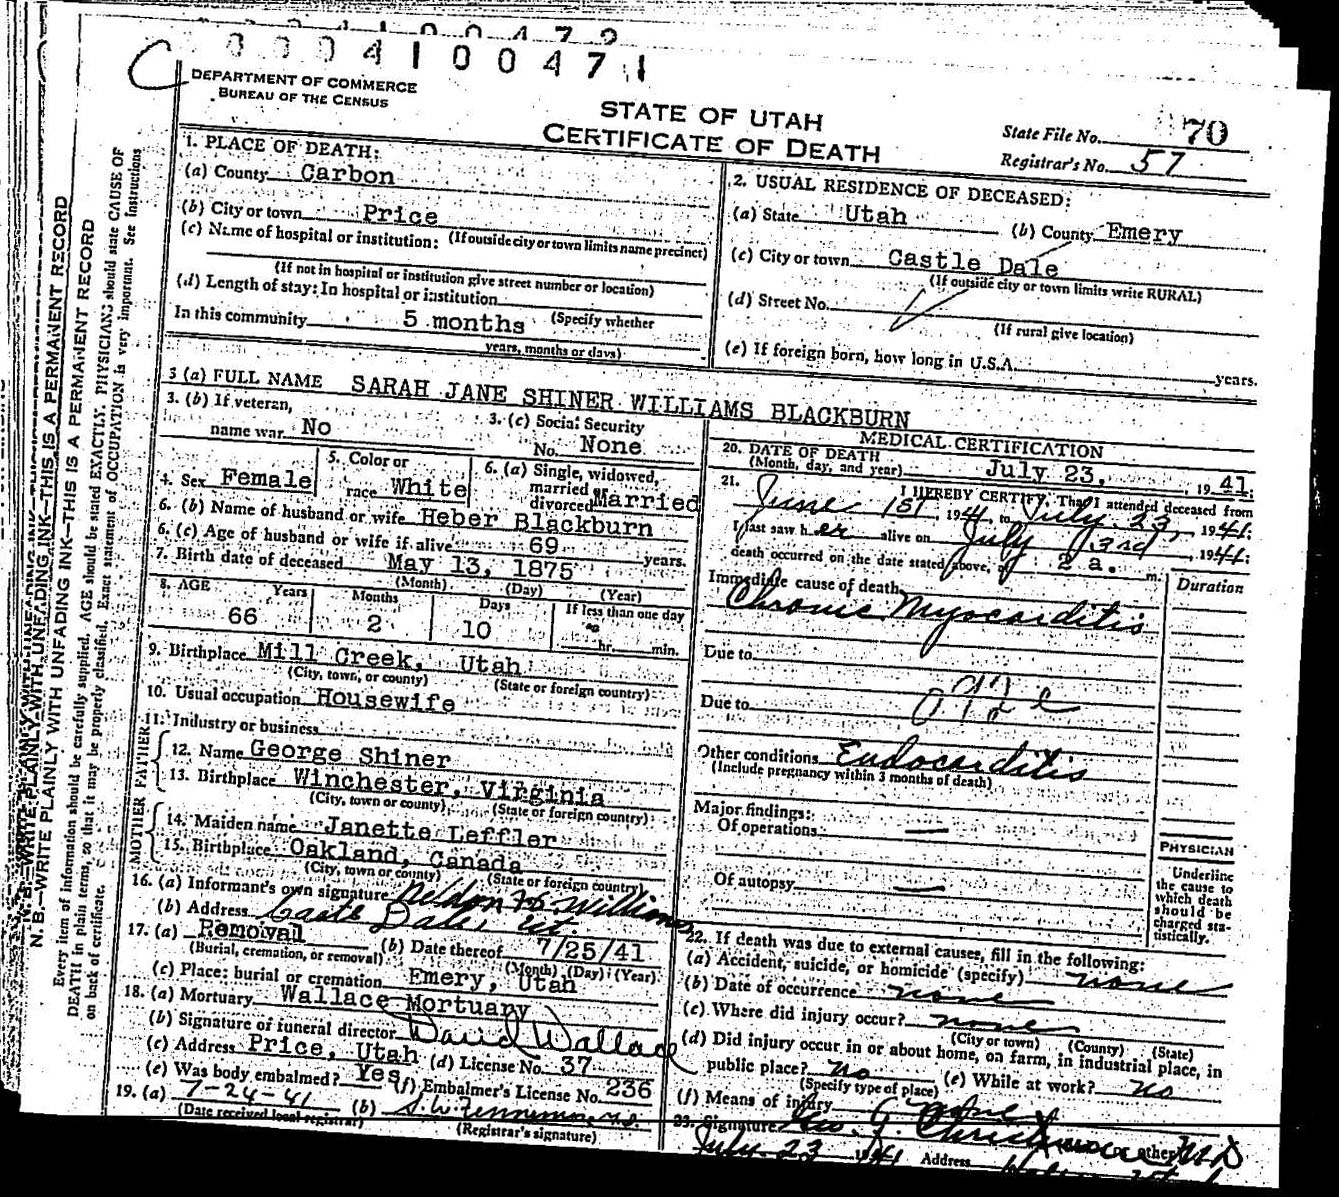 0 0 0 4 1 0 0 4 7 1
C
DEPARTMENT OF COMMERCE
BUREAU OF THE CENSUS
STATE OF UTAH
CERTIFICATE OF DEATH
State File No. 70
Registrar's No. 57
1. PLACE OF DEATH:
(a) County Carbon
(b) City or town Price
(c) Name of hospital or institution: (If outside city or town limits name precinct)
(If not in hospital or institution give street number or location)
(d) Length of stay: In hospital or institution
In this community 5 months (Specify whether
years, months or days)
2. USUAL RESIDENCE OF DECEASED:
(a) State Utah (b) County Emery
(c) City or town Castle Dale
(If outside city or town limits write RURAL)
(d) Street No.
(If rural give location)
(e) If foreign born, how long in U.S.A. years.
3 (a) FULL NAME SARAH JANE SHINER WILLIAMS BLACKBURN
3. (b) If veteran,
name war No
3. (c) Social Security
No. None
4. Sex Female
5. Color or
race White
6. (a) Single, widowed,
married or
divorced Married
6. (b) Name of husband or wife Heber Blackburn
6. (c) Age of husband or wife if alive 69 years.
7. Birth date of deceased May 13, 1875
(Month) (Day) (Year)
8. AGE Years Months Days If less than one day
66 2 10 hr. min.
9. Birthplace Mill Creek, Utah
(City, town, or county) (State or foreign country)
10. Usual occupation Housewife
11. Industry or business
FATHER
12. Name George Shiner
13. Birthplace Winchester, Virginia
(City, town or county) (State or foreign country)
MOTHER
14. Maiden name Janette Leffler
15. Birthplace Oakland, Canada
(City, town or county) (State or foreign country)
16. (a) Informant's own signature Neldon H Williams
(b) Address Castle Dale, Ut.
17. (a) Removal (b) Date thereof 7/25/41
(Burial, cremation, or removal) (Month) (Day) (Year)
(c) Place: burial or cremation Emery, Utah
18. (a) Mortuary Wallace Mortuary
(b) Signature of funeral director David Wallace
(c) Address Price, Utah (d) License No. 37
(e) Was body embalmed? Yes (f) Embalmer's License No. 236
19. (a) 7-24-41 (b)
(Date received local registrar) (Registrar's signature)
MEDICAL CERTIFICATION
20. DATE OF DEATH
(Month, day, and year) July 23, 1941
21. I HEREBY CERTIFY, That I attended deceased from
June 1st 1941, to July 23, 1941;
I last saw her alive on July 3rd, 1941;
death occurred on the date stated above, at 2 a. m.
Duration
Immediate cause of death
Chronic Myocarditis
Due to
Due to
Other conditions Endocarditis
(Include pregnancy within 3 months of death)
Major findings:
Of operations —
Of autopsy —
PHYSICIAN
Underline
the cause to
which death
should be
charged sta-
tistically.
22. If death was due to external causes, fill in the following:
(a) Accident, suicide, or homicide (specify) none
(b) Date of occurrence none
(c) Where did injury occur? none
(City or town) (County) (State)
(d) Did injury occur in or about home, on farm, in industrial place, in
public place? no (e) While at work? no
(Specify type of place)
(f) Means of injury
23. Signature
July 23 1941 Address
N. B.—WRITE PLAINLY WITH UNFADING INK—THIS IS A PERMANENT RECORD
Every item of information should be carefully supplied. AGE should be stated EXACTLY. PHYSICIANS should state CAUSE OF
DEATH in plain terms, so that it may be properly classified. Exact statement of OCCUPATION is very important. See Instructions
on back of certificate.